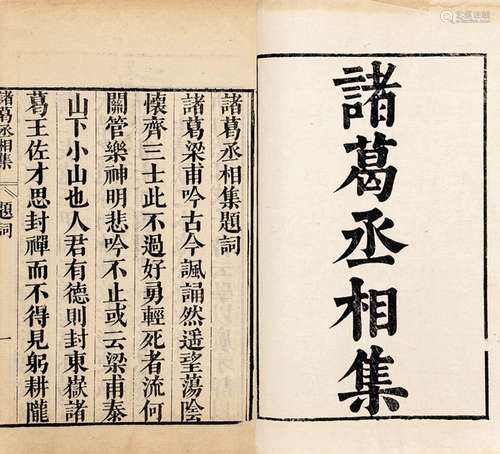 諸葛丞相集
諸葛丞相集題詞
諸葛梁甫吟古今諷誦然遥望蕩陰
懷齊三士此不過好勇輕死者流何
關管樂神明悲吟不止或云梁甫泰
山下小山也人君有德則封東嶽諸
葛王佐才思封禪而不得見躬耕隴
諸葛丞相集 題詞 一